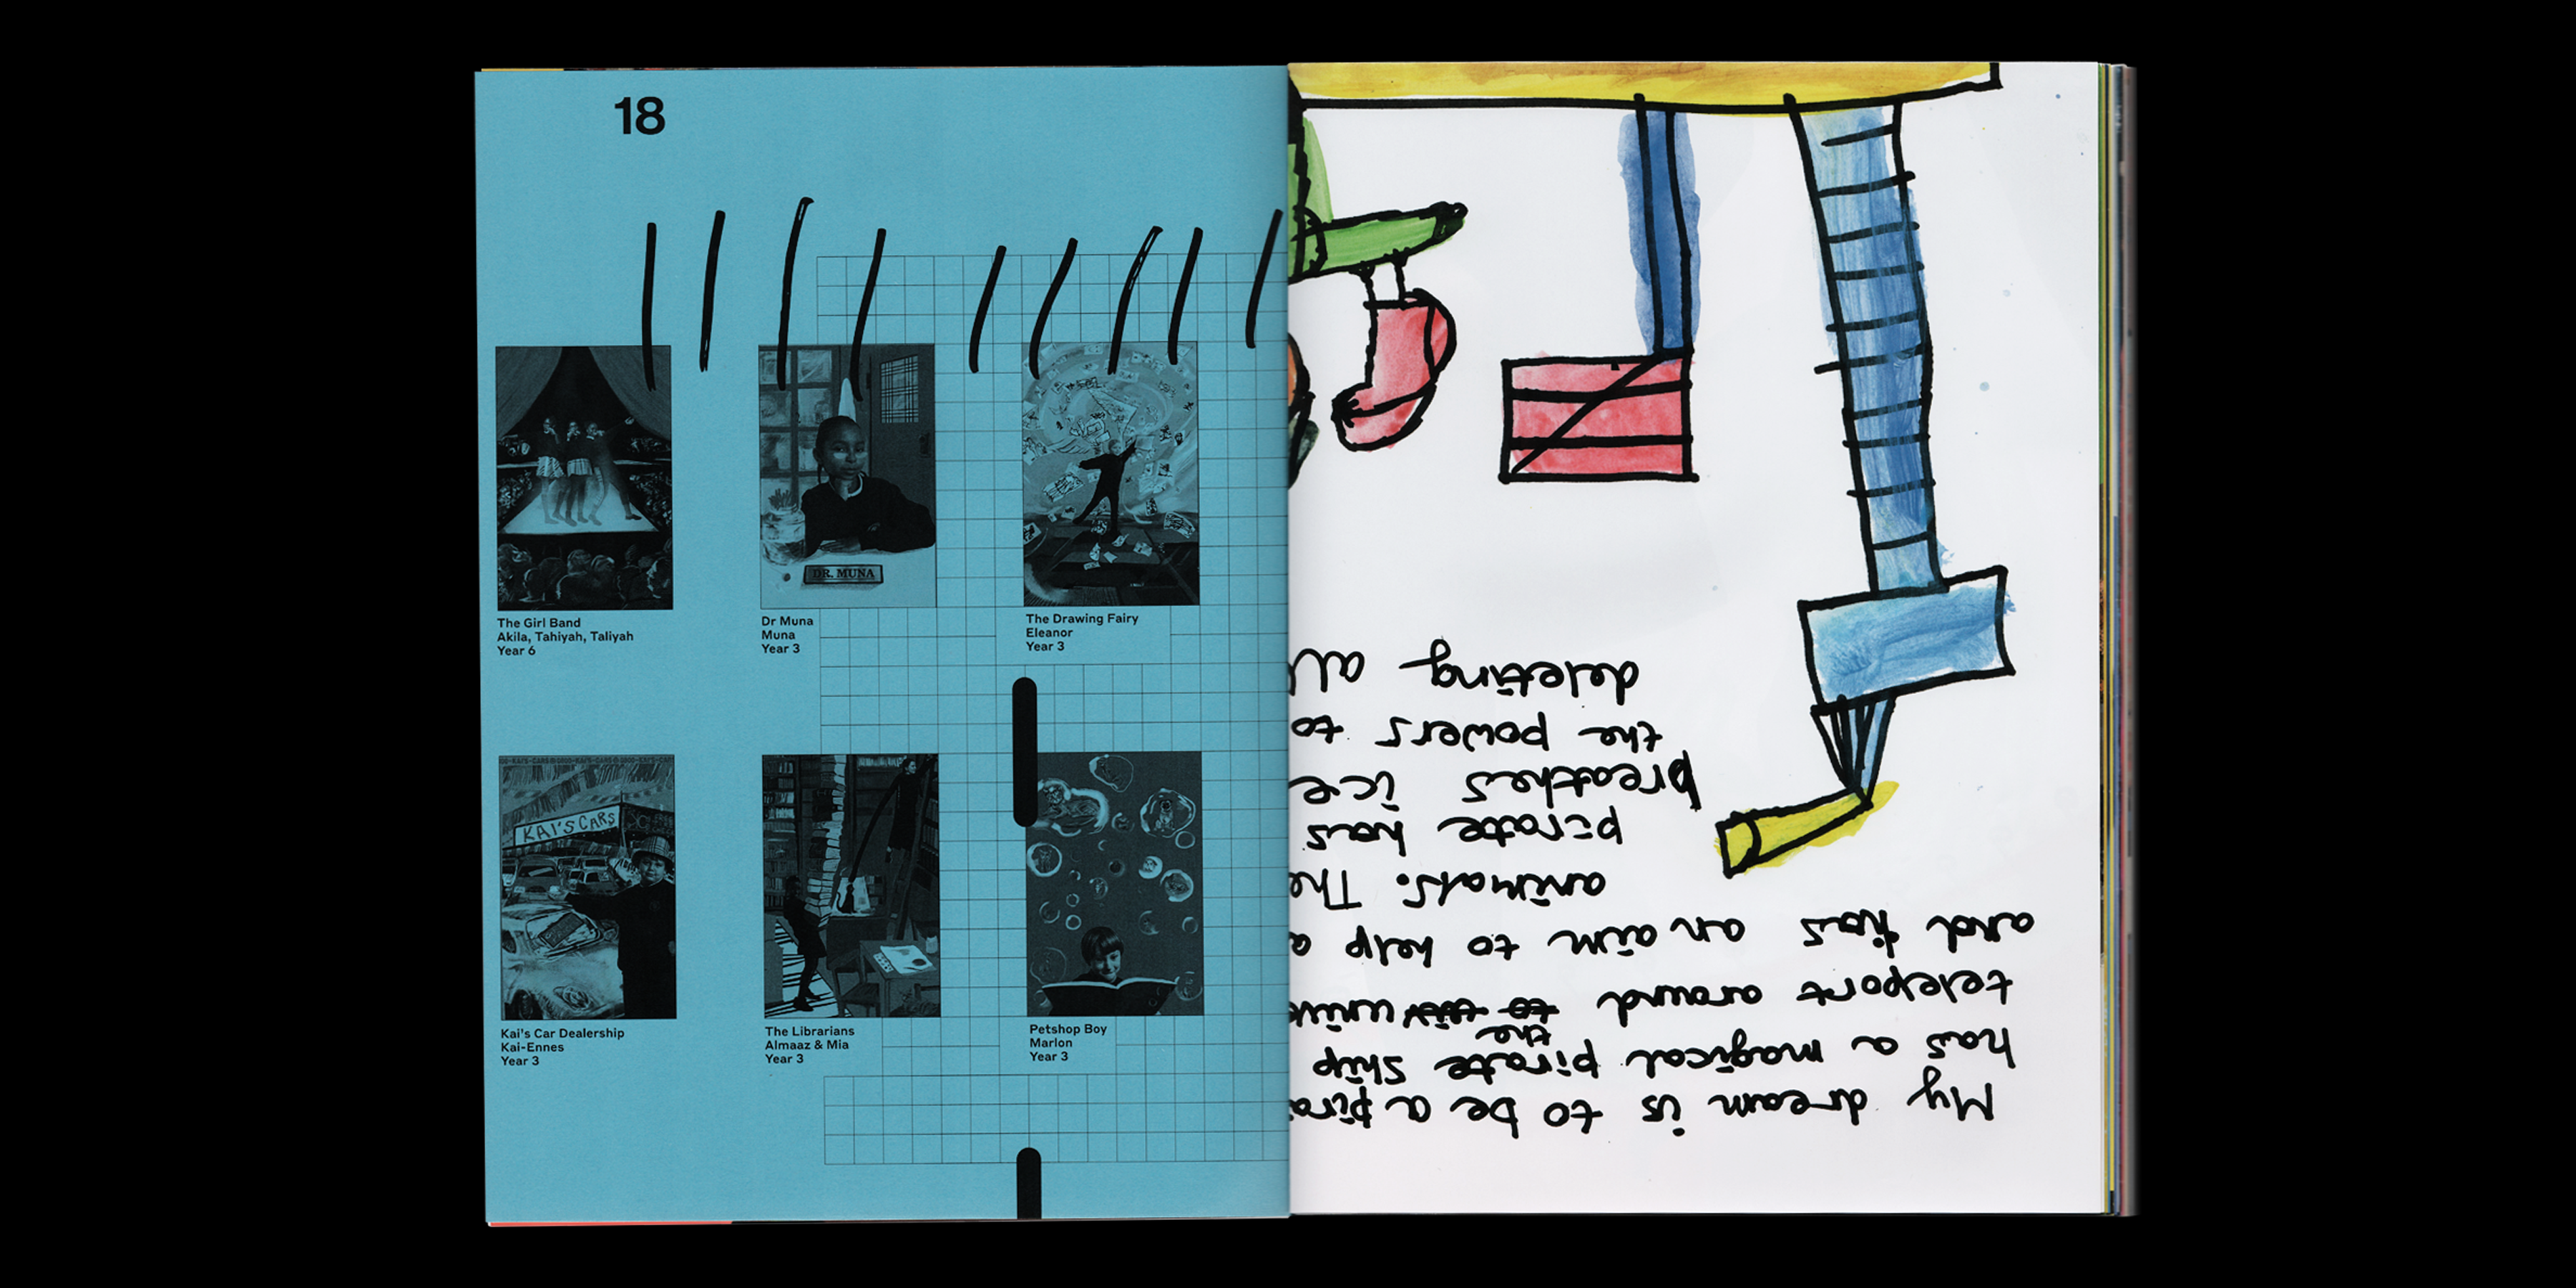 18
The Girl Band
Akila, Tahiyah, Taliyah
Year 6
DR. MUNA
Dr Muna
Muna
Year 3
The Drawing Fairy
Eleanor
Year 3
KAI'S CARS
Kai's Car Dealership
Kai-Ennes
Year 3
The Librarians
Almaaz & Mia
Year 3
Petshop Boy
Marlon
Year 3
My dream is to be a pira
has a magical pirate ship
the
teleport around to univ
and has an aim to help a
animals. The
pirate has
breathes ice
the powers to
deleting all